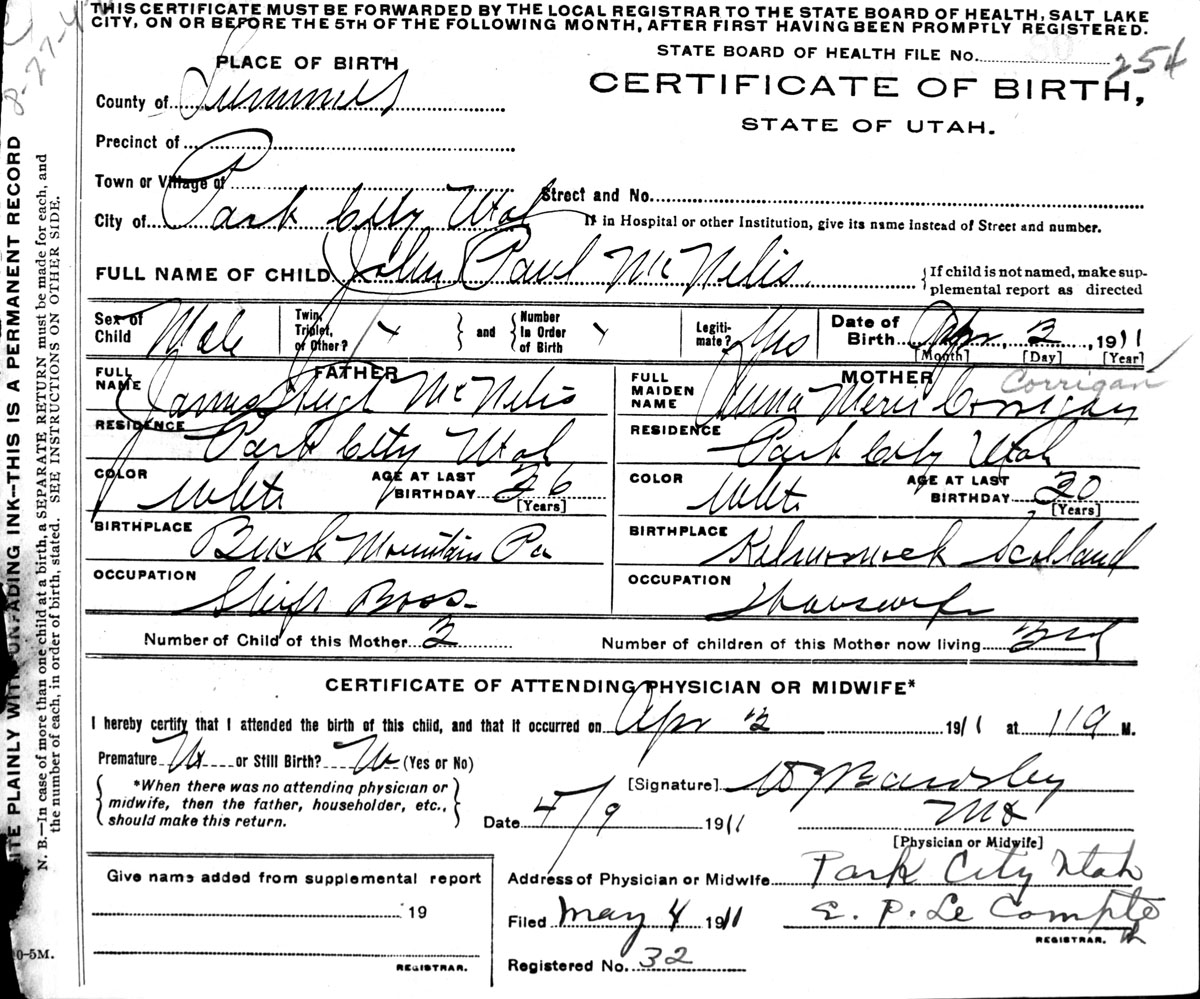 THIS CERTIFICATE MUST BE FORWARDED BY THE LOCAL REGISTRAR TO THE STATE BOARD OF HEALTH, SALT LAKE
CITY, ON OR BEFORE THE 5TH OF THE FOLLOWING MONTH, AFTER FIRST HAVING BEEN PROMPTLY REGISTERED.
STATE BOARD OF HEALTH FILE No. 254
8-27-4
PLACE OF BIRTH
CERTIFICATE OF BIRTH,
STATE OF UTAH.
County of Summit
Precinct of
Town or Village of
Street and No.
City of Park City Utah
If in Hospital or other Institution, give its name instead of Street and number.
FULL NAME OF CHILD John Paul McNelis
If child is not named, make sup-
plemental report as directed
Sex of Child Male
Twin, Triplet, or Other?
and Number In Order of Birth
Legiti-mate? Yes
Date of Birth Apr. 2, 1911
[Month] [Day] [Year]
FATHER
MOTHER Corrigan
FULL NAME James Hugh McNelis
FULL MAIDEN NAME Anna Merie Corrigan
RESIDENCE Park City Utah
RESIDENCE Park City Utah
COLOR White AGE AT LAST BIRTHDAY 26 [Years]
COLOR White AGE AT LAST BIRTHDAY 30 [Years]
BIRTHPLACE Buck Mountain Pa
BIRTHPLACE Kilmornock Scotland
OCCUPATION Shift Boss
OCCUPATION Housewife
Number of Child of this Mother 3
Number of children of this Mother now living 3rd
CERTIFICATE OF ATTENDING PHYSICIAN OR MIDWIFE*
I hereby certify that I attended the birth of this child, and that it occurred on Apr 2 1911 at M.
Premature No or Still Birth? No (Yes or No)
*When there was no attending physician or
midwife, then the father, householder, etc.,
should make this return.
[Signature] Bardsley
MD
Date 4/9 1911
[Physician or Midwife]
Give name added from supplemental report
Address of Physician or Midwife Park City Utah
19
Filed May 4 1911
E. P. Le Compte
REGISTRAR.
REGISTRAR.
Registered No. 32
0-5M.
ITE PLAINLY WITH UNFADING INK--THIS IS A PERMANENT RECORD
N. B.—In case of more than one child at a birth, a SEPARATE RETURN must be made for each, and
the number of each, in order of birth, stated. SEE INSTRUCTIONS ON OTHER SIDE.